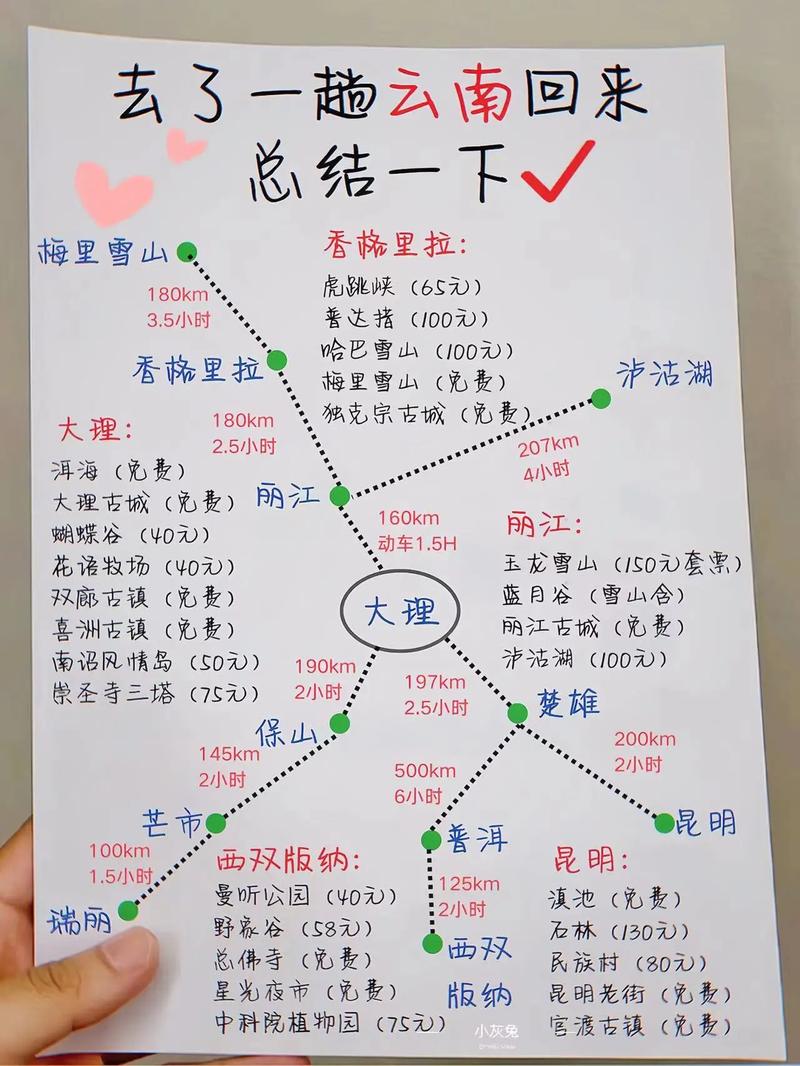 去了一趟云南回来
总结一下
梅里雪山
180km
3.5小时
香格里拉
180km
2.5小时
丽江
香格里拉:
虎跳峡（65元）
普达措（100元）
哈巴雪山（100元）
梅里雪山（免费）
独克宗古城（免费）
泸沽湖
207km
4小时
160km
动车1.5H
大理:
洱海（免费）
大理古城（免费）
蝴蝶谷（40元）
花语牧场（40元）
双廊古镇（免费）
喜洲古镇（免费）
南诏风情岛（50元）
崇圣寺三塔（75元）
丽江:
玉龙雪山（150元套票）
蓝月谷（雪山含）
丽江古城（免费）
泸沽湖（100元）
大理
190km
2小时
保山
145km
2小时
芒市
100km
1.5小时
瑞丽
197km
2.5小时
楚雄
200km
2小时
昆明
500km
6小时
普洱
125km
2小时
西双
版纳
西双版纳:
曼听公园（40元）
野象谷（58元）
总佛寺（免费）
星光夜市（免费）
中科院植物园（75元）
昆明:
滇池（免费）
石林（130元）
民族村（80元）
昆明老街（免费）
官渡古镇（免费）
小灰兔